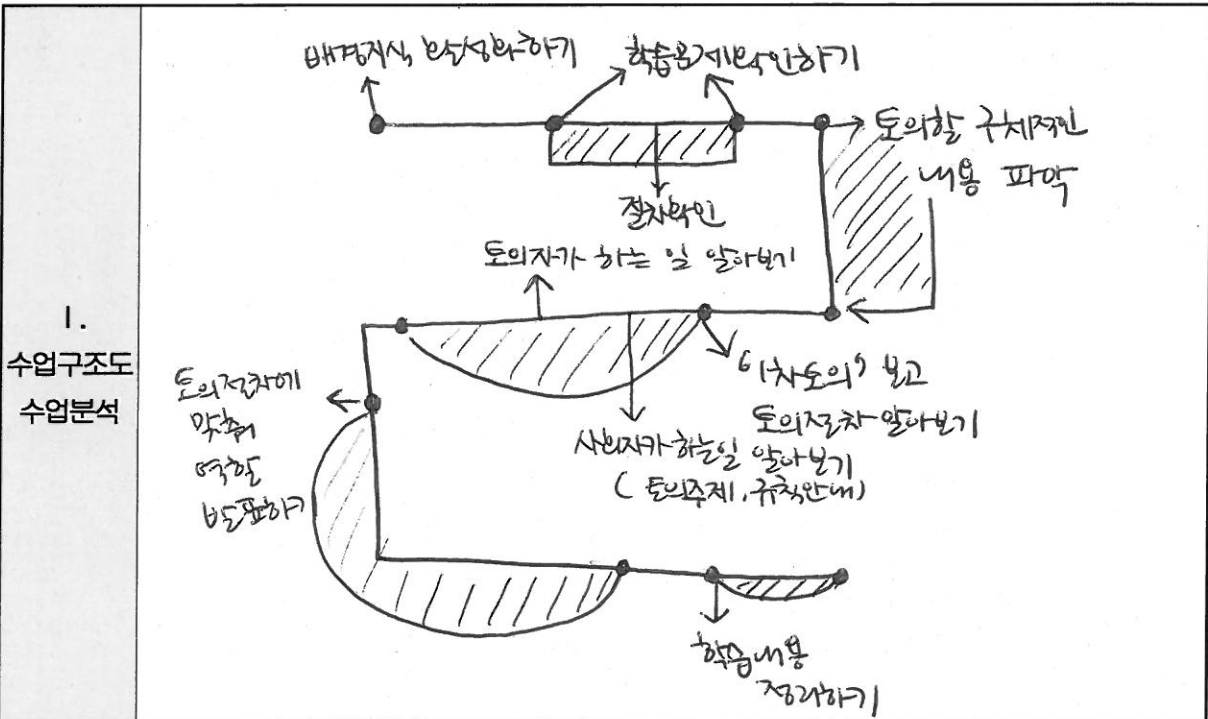 I.
수업구조도
수업분석
배경지식 활성화하기
학습문제확인하기
토의할 구체적인
내용 파악
절차확인
토의자가 하는 일 알아보기
'1차토의' 보고
토의절차 알아보기
사회자가 하는일 알아보기
(토의주제, 규칙안내)
토의절차에
맞춰
역할
발표하기
학습내용
정리하기